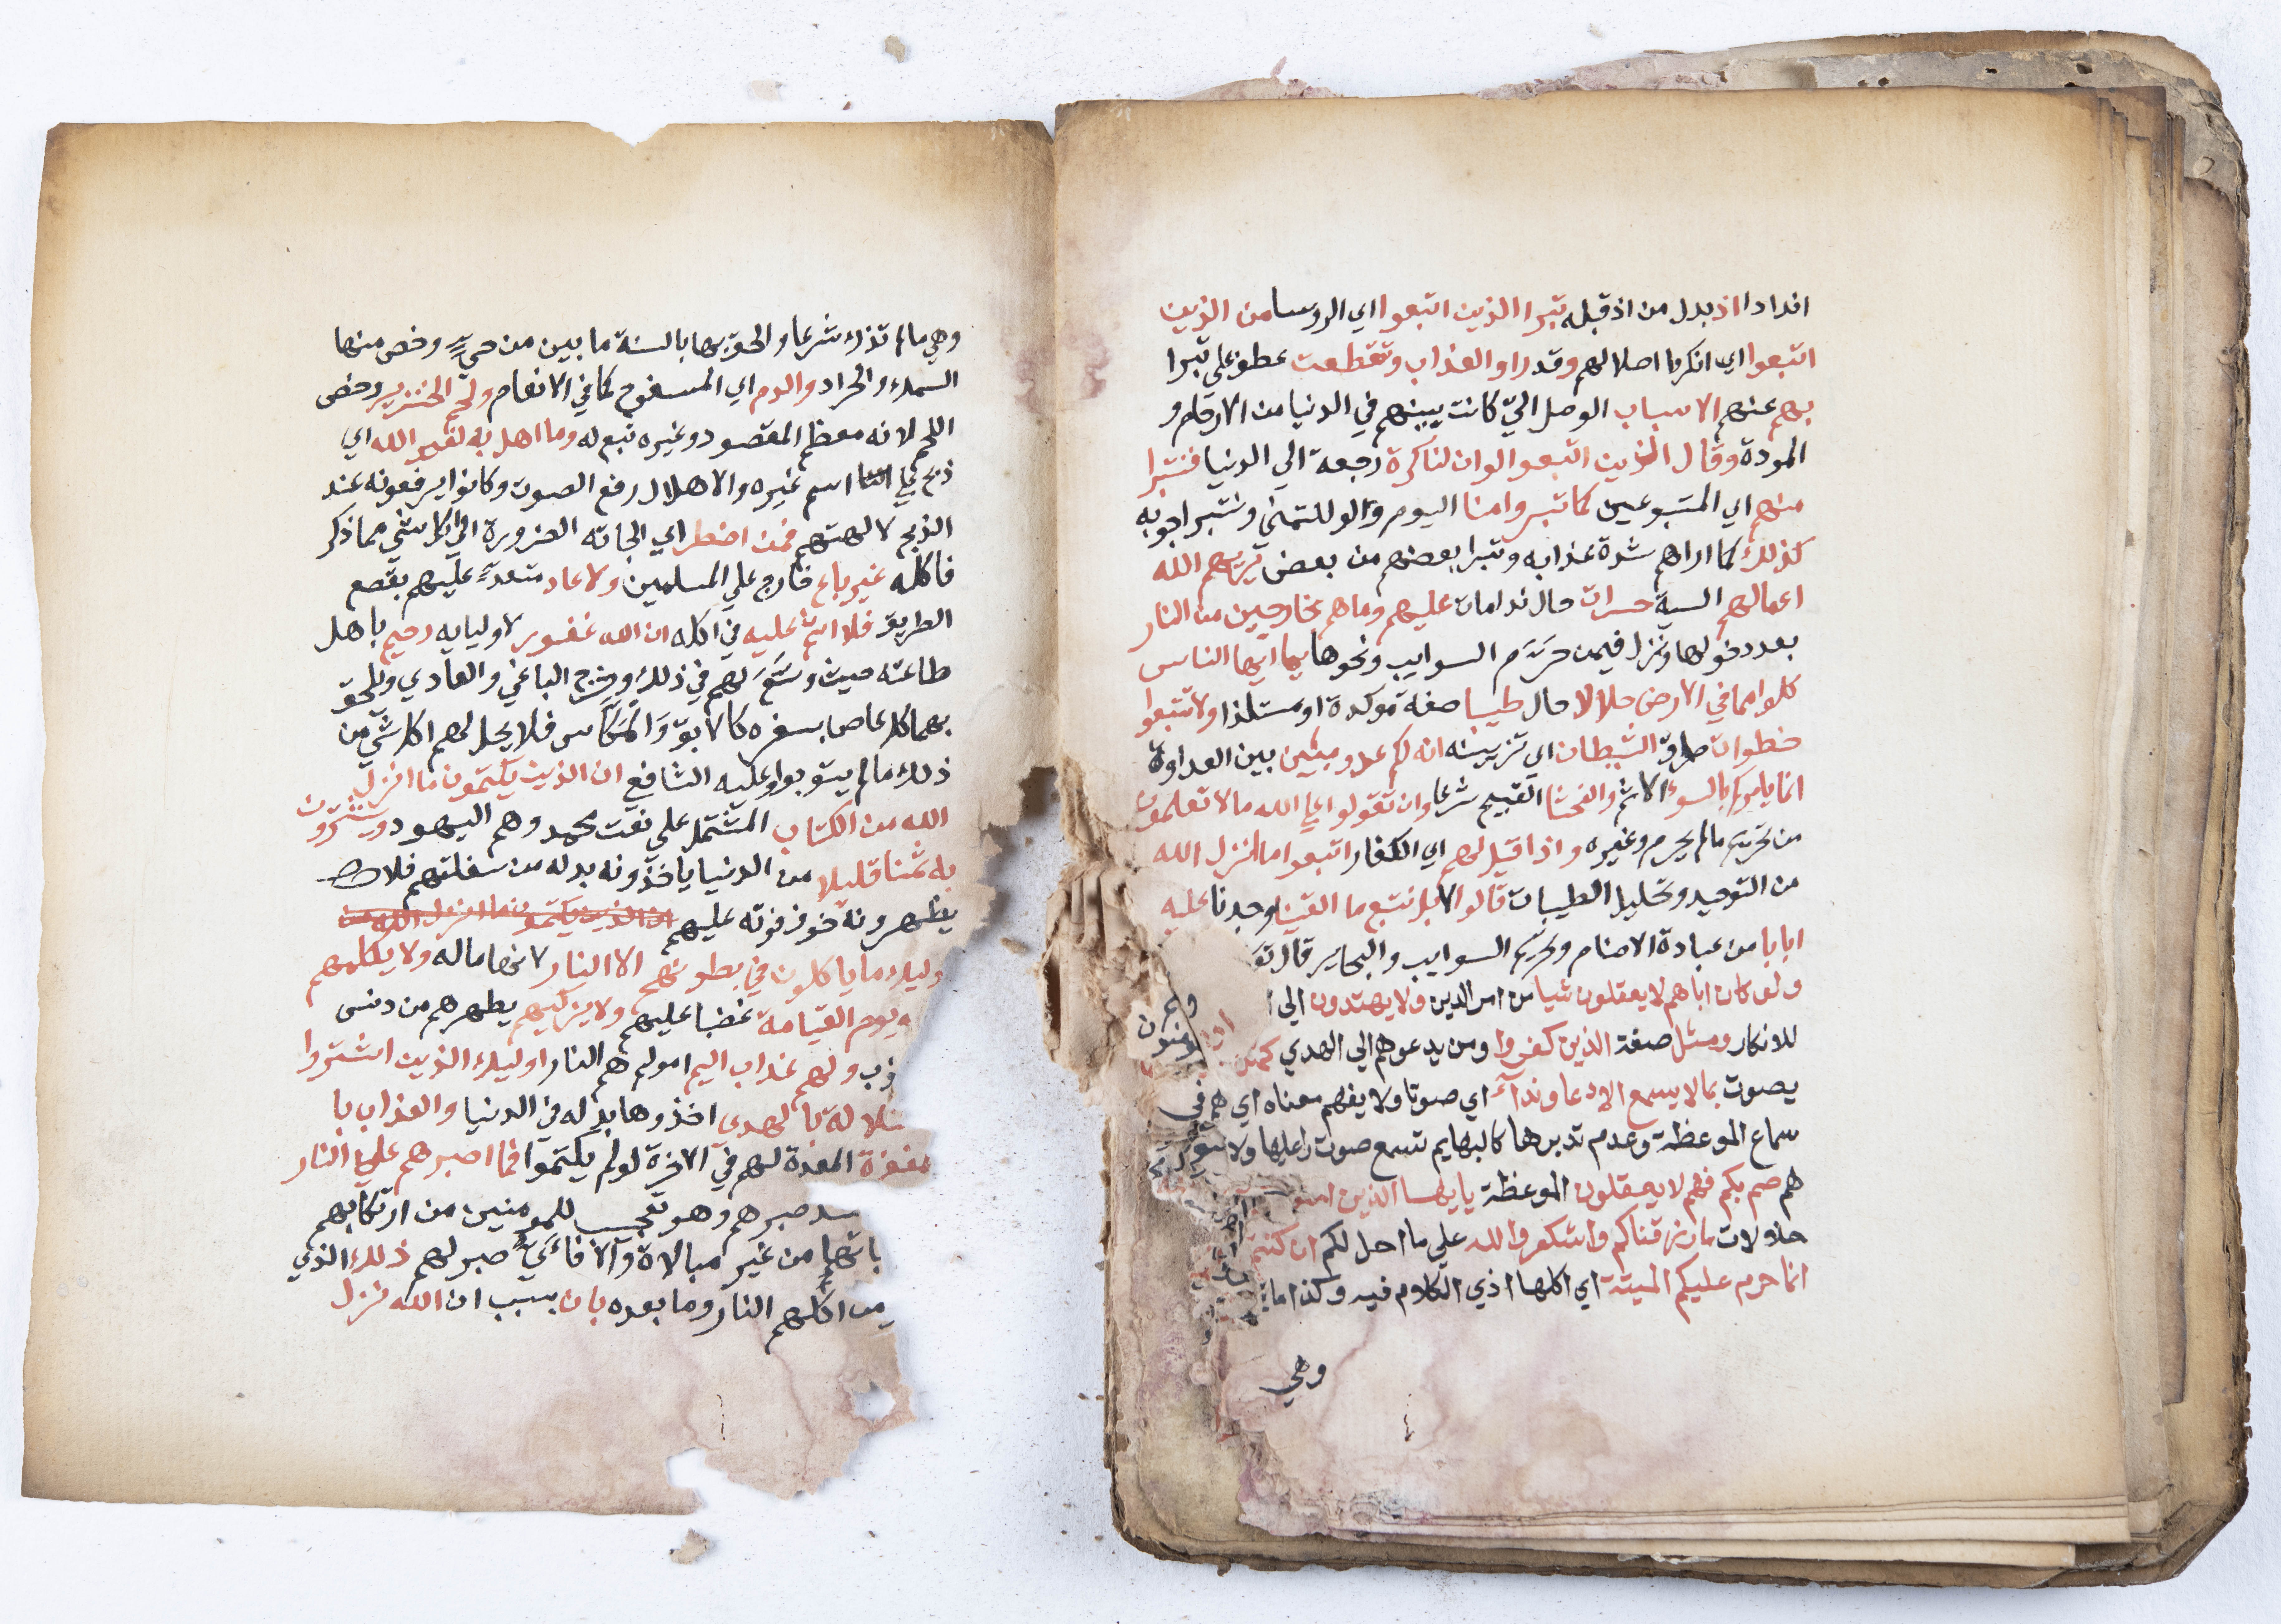 اندادا اذ بدل من اذ قبله تبرا الذين اتبعوا اي الروسا من الذين
اتبعوا اي انكروا اصلالهم وقد راوا العذاب وتقطعت عطف على تبرا
بهم عنهم الاسباب الوصل التي كانت بينهم في الدنيا من الارحام و
المودة وقال الذين اتبعوا لو ان لنا كرة رجعة الي الدنيا فنتبرا
منهم اي المتبوعين كما تبروا منا اليوم ولو للتمني ونتبرا جوابه
كذلك كما اراهم شدة عذابه وتبرا بعضهم من بعض يريهم الله
اعمالهم السية حسرات حال ندامات عليهم وما هم بخارجين من النار
بعد دخولها ونزل فيمن حرّم السوايب ونحوها يا ايها الناس
كلوا مما في الارض حلالا حال طيبا صفة موكدة او مستلذا ولا تتبعوا
خطوات طرق الشيطان اي تزيينه انه لكم عدو مبين بين العداوة
انما يامركم بالسوء الاثم والفحشا القبيح شرعا وان تقولوا على الله ما لا تعلمون
من تحريم ما لم يحرم وغيره واذا قيل لهم اي الكفار اتبعوا ما انزل الله
من التوحيد وتحليل الطيبات قالوا لا بل نتبع ما الفينا وجدنا عليه
ابانا من عبادة الاصنام وتحريم السوايب والبحاير قال تع
ولو كان اباهم لا يعقلون شيا من امر الدين ولا يهتدون الي
للانكار ومثل صفة الذين كفروا ومن يدعوهم الي الهدي كمثل
يصوت بما لا يسمع الا دعا ونداءً اي صوتا ولا يفهم معناه اي هم في
سماع الموعظة وعدم تدبرها كالبهايم تسمع صوت راعيها ولا
هم صم بكم فهم لا يعقلون الموعظة يا يها الذين امنو
حلالات ما رزقناكم واشكروا لله علي ما احل لكم ان كنتم
انما حرم عليكم الميتة اي اكلها اذي الكلام فيه وكذا ما
وهي
وهي ما لم تذك شرعا والحق بها بالسنة ما بين من حيٍّ وخص منها
السمك والجراد والدم اي المسفوح كما في الانعام ولحم الخنزير وخص
اللحم لانه معظم المقصود وغيره تبع له وما اهل به لغير الله اي
ذبح علي اسم غيره والاهلال رفع الصوت وكانوا يرفعونه عند
الذبح لالهتهم فمن اضطر اي الجاته الضرورة الي اكل شي مما ذكر
فاكله غير باغ خارج علي المسلمين ولا عاد متعدٍ عليهم بقطع
الطريق فلا اثم عليه في اكله ان الله غفور لاوليايه رحيم باهل
طاعته حيث وسّع لهم في ذلك وخرج الباغي والعادي ويلحق
بهما كل عاص بسفره كالابق والمكّاس فلا يحل لهم اكل شي من
ذلك ما لم يتوبوا وعليه الشافع ان الذين يكتمون ما انزل
الله من الكتاب المشتمل علي نعت محمد وهم اليهود ويشترون
به ثمنا قليلا من الدنيا ياخذونه بدله من سفلتهم فلا
يظهرونه خوف فوته عليهم ان الذين يكتمون ما انزل الله من
وليك ما ياكلون في بطونهم الا النار لانها ماله ولا يكلمهم
يوم القيامة غضبا عليهم ولا يزكيهم يطهرهم من دنس
ولهم عذاب اليم مولم هم النار اوليك الذين اشتروا
بالهدى اخذوها بدله في الدنيا والعذاب با
مغفرة المعدة لهم في الاخرة لو لم يكتموا فما اصبرهم علي النار
صبرهم وهو تعجب للمومنين من ارتكابهم
من غير مبالاة والا فايّ صبر لهم ذلك الذي
من اكلهم النار وما بعده بان بسبب ان الله نزل